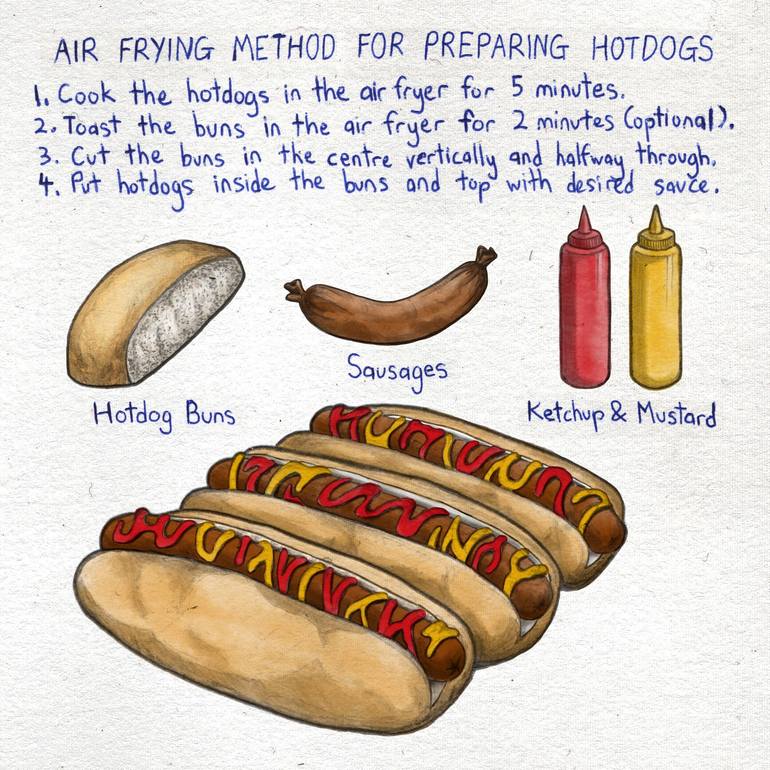 AIR FRYING METHOD FOR PREPARING HOTDOGS
1. Cook the hotdogs in the air fryer for 5 minutes.
2. Toast the buns in the air fryer for 2 minutes (optional).
3. Cut the buns in the centre vertically and halfway through.
4. Put hotdogs inside the buns and top with desired sauce.
Sausages
Hotdog Buns
Ketchup & Mustard